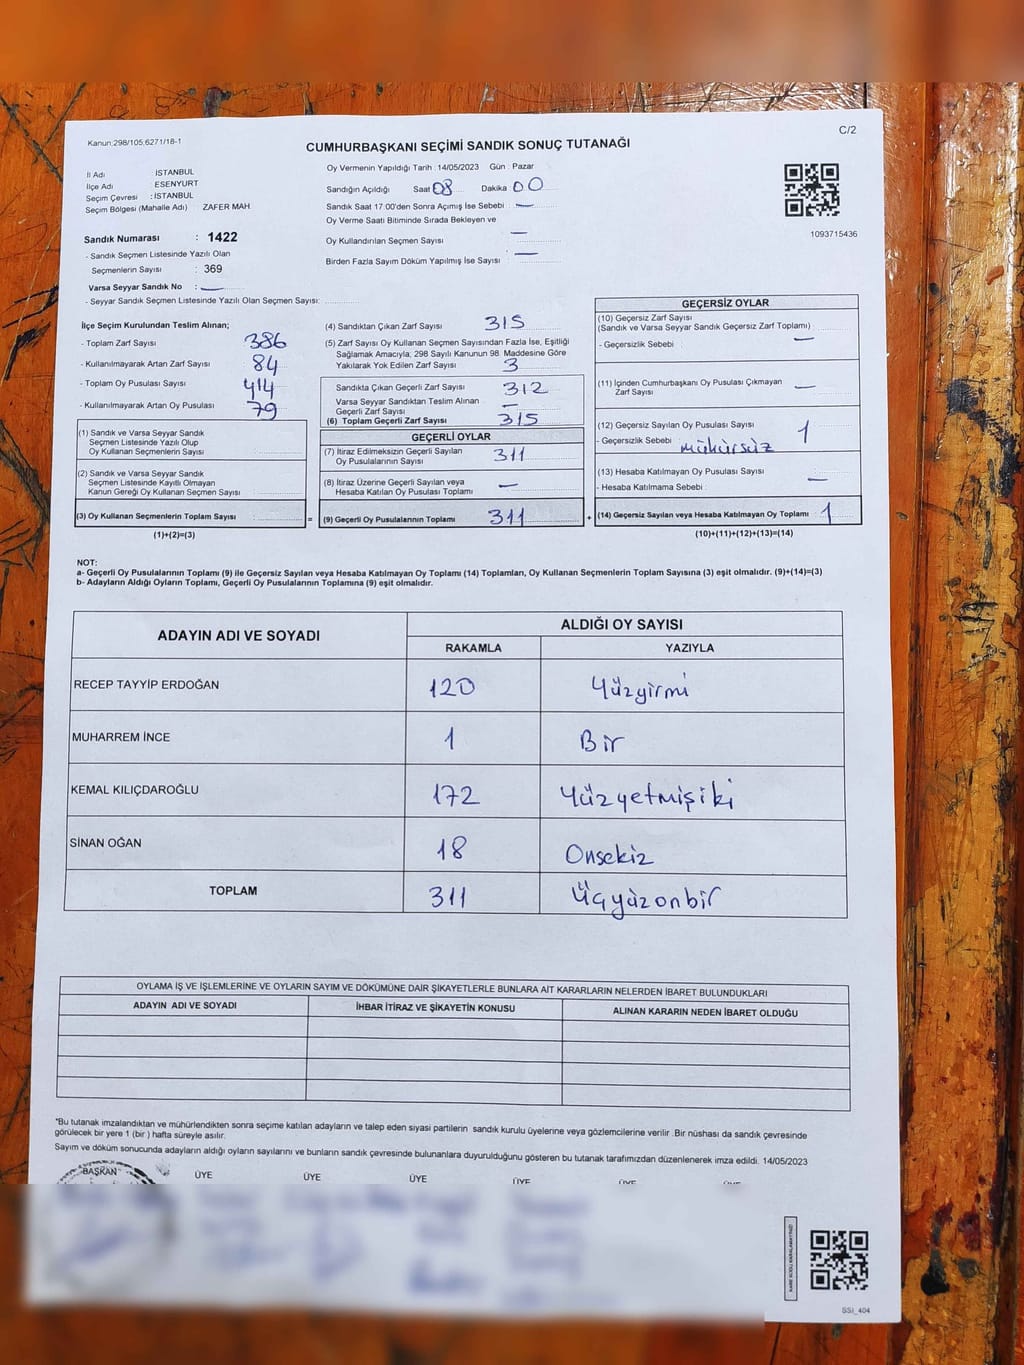 Kanun:298/105;6271/18-1
C/2
CUMHURBAŞKANI SEÇİMİ SANDIK SONUÇ TUTANAĞI
İl Adı İSTANBUL
İlçe Adı ESENYURT
Seçim Çevresi : İSTANBUL
Seçim Bölgesi (Mahalle Adı) ZAFER MAH
Sandık Numarası : 1422
- Sandık Seçmen Listesinde Yazılı Olan
Seçmenlerin Sayısı : 369
Varsa Seyyar Sandık No : —
- Seyyar Sandık Seçmen Listesinde Yazılı Olan Seçmen Sayısı:
Oy Vermenin Yapıldığı Tarih : 14/05/2023 Gün : Pazar
Sandığın Açıldığı Saat 08 Dakika 00
Sandık Saat 17:00'den Sonra Açımış İse Sebebi : —
Oy Verme Saati Bitiminde Sırada Bekleyen ve
Oy Kullandırılan Seçmen Sayısı —
Birden Fazla Sayım Döküm Yapılmış İse Sayısı : —
1093715436
İlçe Seçim Kurulundan Teslim Alınan;
- Toplam Zarf Sayısı 386
- Kullanılmayarak Artan Zarf Sayısı 84
- Toplam Oy Pusulası Sayısı 414
- Kullanılmayarak Artan Oy Pusulası 79
(1) Sandık ve Varsa Seyyar Sandık
Seçmen Listesinde Yazılı Olup
Oy Kullanan Seçmenlerin Sayısı :
(2) Sandık ve Varsa Seyyar Sandık
Seçmen Listesinde Kayıtlı Olmayan
Kanun Gereği Oy Kullanan Seçmen Sayısı :
(3) Oy Kullanan Seçmenlerin Toplam Sayısı :
(1)+(2)=(3)
(4) Sandıktan Çıkan Zarf Sayısı : 315
(5) Zarf Sayısı Oy Kullanan Seçmen Sayısından Fazla İse, Eşitliği
Sağlamak Amacıyla; 298 Sayılı Kanunun 98. Maddesine Göre
Yakılarak Yok Edilen Zarf Sayısı : 3
Sandıkta Çıkan Geçerli Zarf Sayısı : 312
Varsa Seyyar Sandıktan Teslim Alınan
Geçerli Zarf Sayısı : —
(6) Toplam Geçerli Zarf Sayısı : 315
GEÇERLİ OYLAR
(7) İtiraz Edilmeksizin Geçerli Sayılan
Oy Pusulalarının Sayısı : 311
(8) İtiraz Üzerine Geçerli Sayılan veya
Hesaba Katılan Oy Pusulası Toplamı : —
= (9) Geçerli Oy Pusulalarının Toplamı : 311
GEÇERSİZ OYLAR
(10) Geçersiz Zarf Sayısı
(Sandık ve Varsa Seyyar Sandık Geçersiz Zarf Toplamı) :
- Geçersizlik Sebebi : —
(11) İçinden Cumhurbaşkanı Oy Pusulası Çıkmayan
Zarf Sayısı : —
(12) Geçersiz Sayılan Oy Pusulası Sayısı : 1
- Geçersizlik Sebebi : mühürsüz
(13) Hesaba Katılmayan Oy Pusulası Sayısı : —
- Hesaba Katılmama Sebebi :
+ (14) Geçersiz Sayılan veya Hesaba Katılmayan Oy Toplamı : 1
(10)+(11)+(12)+(13)=(14)
NOT:
a- Geçerli Oy Pusulalarının Toplamı (9) ile Geçersiz Sayılan veya Hesaba Katılmayan Oy Toplamı (14) Toplamları, Oy Kullanan Seçmenlerin Toplam Sayısına (3) eşit olmalıdır. (9)+(14)=(3)
b- Adayların Aldığı Oyların Toplamı, Geçerli Oy Pusulalarının Toplamına (9) eşit olmalıdır.
ADAYIN ADI VE SOYADI ALDIĞI OY SAYISI
RAKAMLA YAZIYLA
RECEP TAYYİP ERDOĞAN 120 Yüzyirmi
MUHARREM İNCE 1 Bir
KEMAL KILIÇDAROĞLU 172 Yüzyetmişiki
SİNAN OĞAN 18 Onsekiz
TOPLAM 311 Üçyüzonbir
OYLAMA İŞ VE İŞLEMLERİNE VE OYLARIN SAYIM VE DÖKÜMÜNE DAİR ŞİKAYETLERLE BUNLARA AİT KARARLARIN NELERDEN İBARET BULUNDUKLARI
ADAYIN ADI VE SOYADI İHBAR İTİRAZ VE ŞİKAYETİN KONUSU ALINAN KARARIN NEDEN İBARET OLDUĞU
*Bu tutanak imzalandıktan ve mühürlendikten sonra seçime katılan adayların ve talep eden siyasi partilerin sandık kurulu üyelerine veya gözlemcilerine verilir .Bir nüshası da sandık çevresinde
görülecek bir yere 1 (bir ) hafta süreyle asılır.
Sayım ve döküm sonucunda adayların aldığı oyların sayılarını ve bunların sandık çevresinde bulunanlara duyurulduğunu gösteren bu tutanak tarafımızdan düzenlenerek imza edildi. 14/05/2023
BAŞKAN ÜYE ÜYE ÜYE ÜYE ÜYE ÜYE
SSI_404